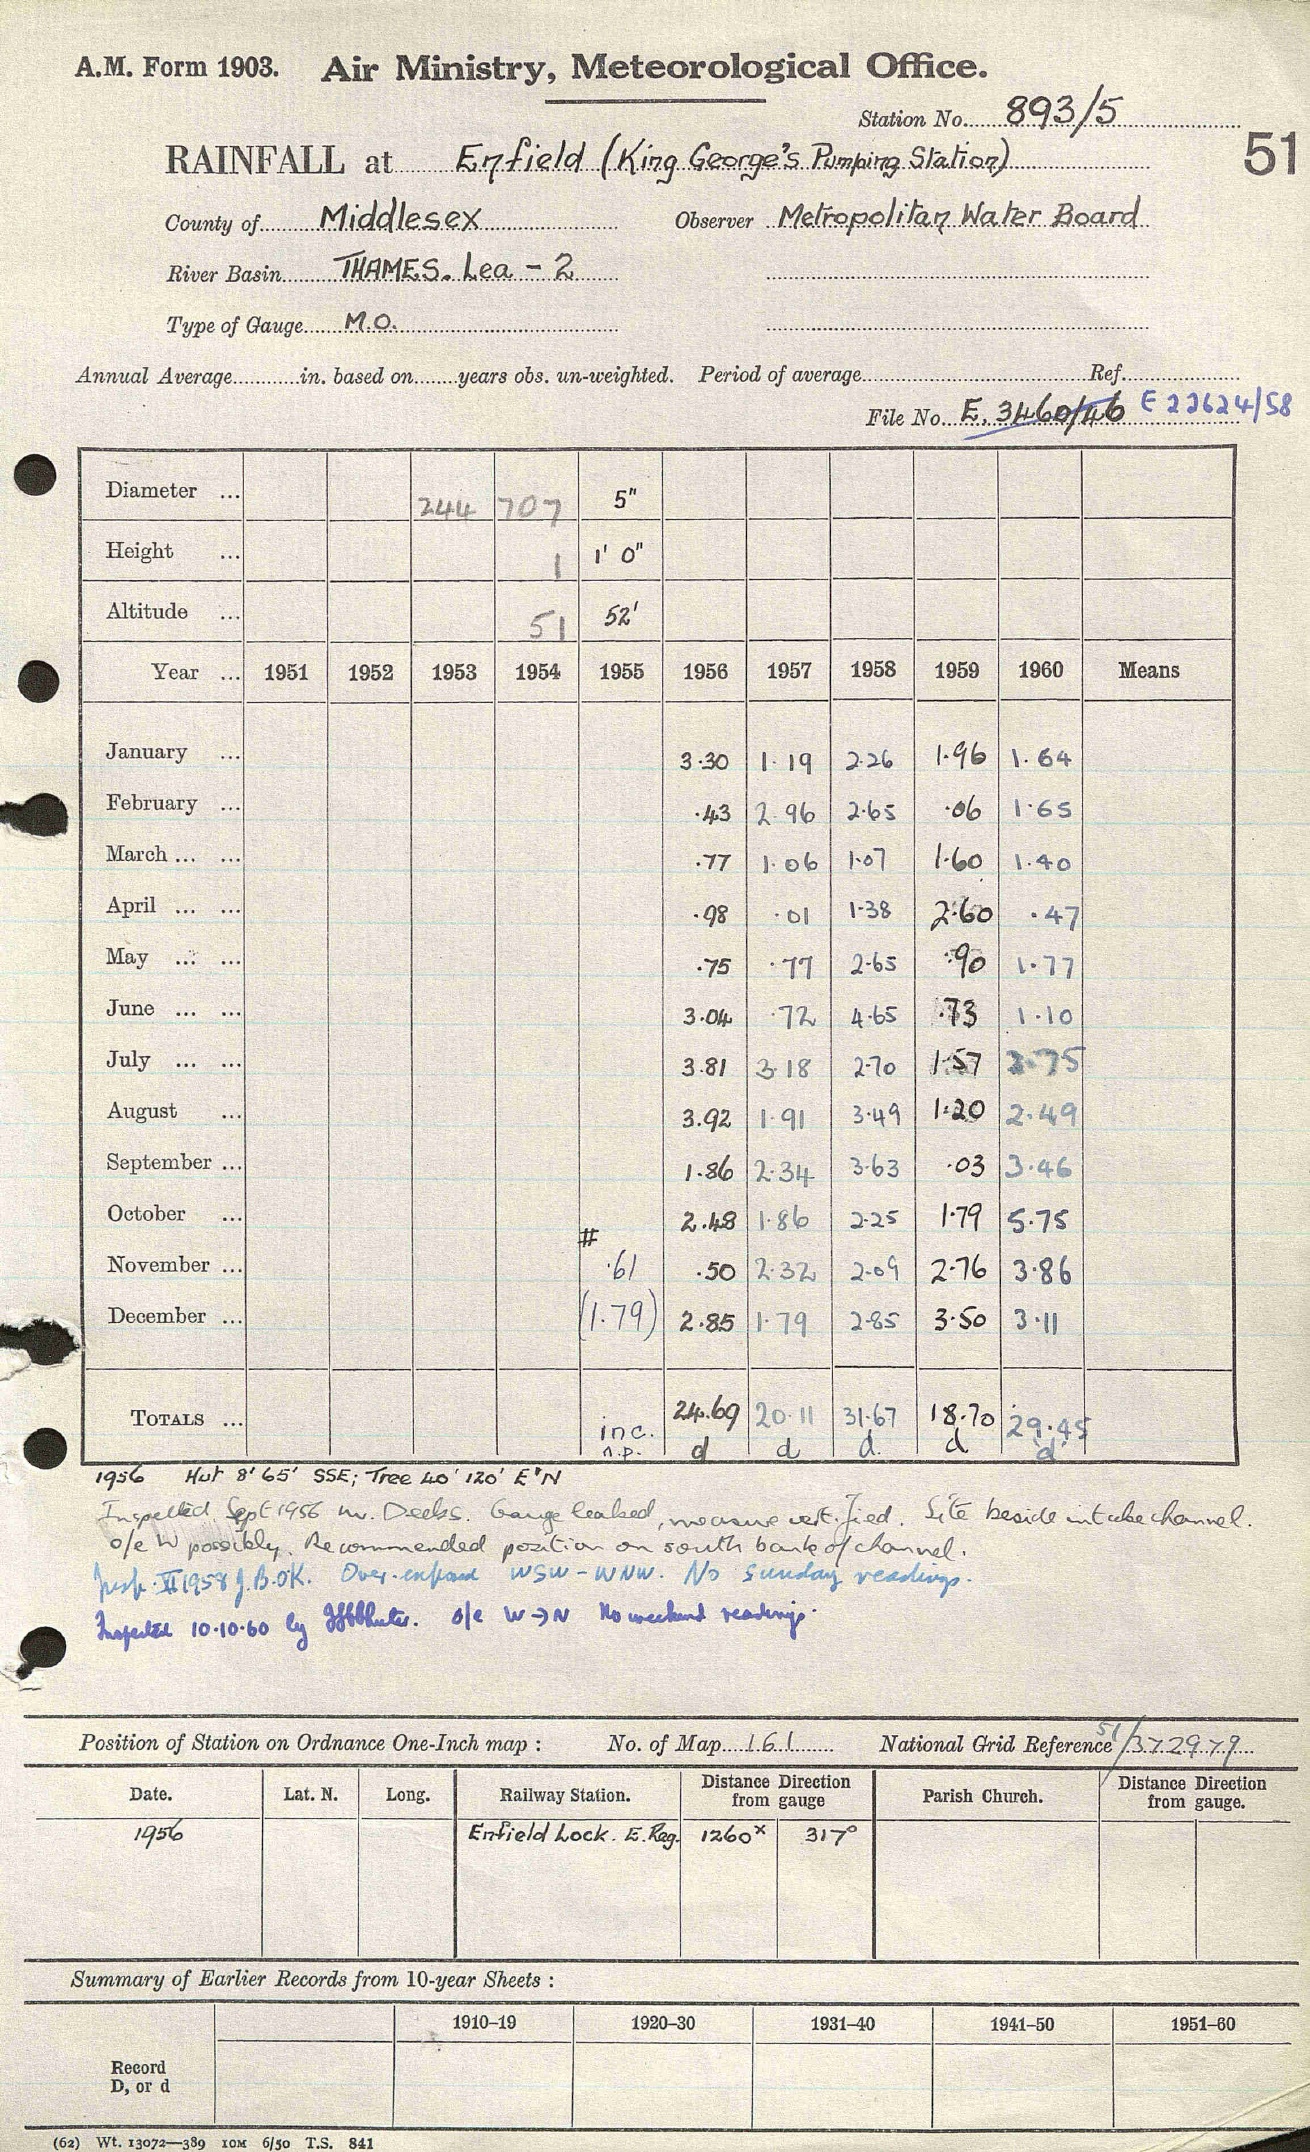 A.M. Form 1903. Air Ministry, Meteorological Office.
Station No. 893/5
51
RAINFALL at Enfield (King George's Pumping Station)
County of Middlesex Observer Metropolitan Water Board
River Basin THAMES. Lea - 2
Type of Gauge M.O.
Annual Average in. based on years obs. un-weighted. Period of average Ref.
File No. E. 3460/46 E 22624/58
Diameter ... 244 707 5"
Height ... 1 1' 0"
Altitude ... 51 52'
Year ... 1951 1952 1953 1954 1955 1956 1957 1958 1959 1960 Means
January ... 3.30 1.19 2.26 1.96 1.64
February ... .43 2.96 2.65 .06 1.65
March ... ... .77 1.06 1.07 1.60 1.40
April ... ... .98 .01 1.38 2.60 .47
May ... ... .75 .77 2.65 .90 1.77
June ... ... 3.04 .72 4.65 .73 1.10
July ... ... 3.81 3.18 2.70 1.57 2.75
August ... 3.92 1.91 3.49 1.20 2.49
September ... 1.86 2.34 3.63 .03 3.46
October ... 2.48 1.86 2.25 1.79 5.75
#
November ... .61 .50 2.32 2.09 2.76 3.86
December ... (1.79) 2.85 1.79 2.85 3.50 3.11
TOTALS ... inc. 24.69 20.11 31.67 18.70 29.45
n.p. d d d. d d
1956 Hut 8' 65' SSE; Tree 40' 120' E'N
Inspected Sept 1956 Mr. Deeks. Gauge leaked, measure verified. Site beside intake channel.
o/e W possibly. Recommended position on south bank of channel.
Insp. VI 1958 J.B. OK. Over-exposed WSW - WNW. No Sunday readings.
Inspected 10.10.60 by o/e W→N No weekend readings.
Position of Station on Ordnance One-Inch map : No. of Map 161 National Grid Reference 51/372979
Date. Lat. N. Long. Railway Station. Distance Direction from gauge Parish Church. Distance Direction from gauge.
1956 Enfield Lock. E. Reg. 1260x 317°
Summary of Earlier Records from 10-year Sheets :
1910–19 1920–30 1931–40 1941–50 1951–60
Record
D, or d
(62) Wt. 13072—389 10M 6/50 T.S. 841